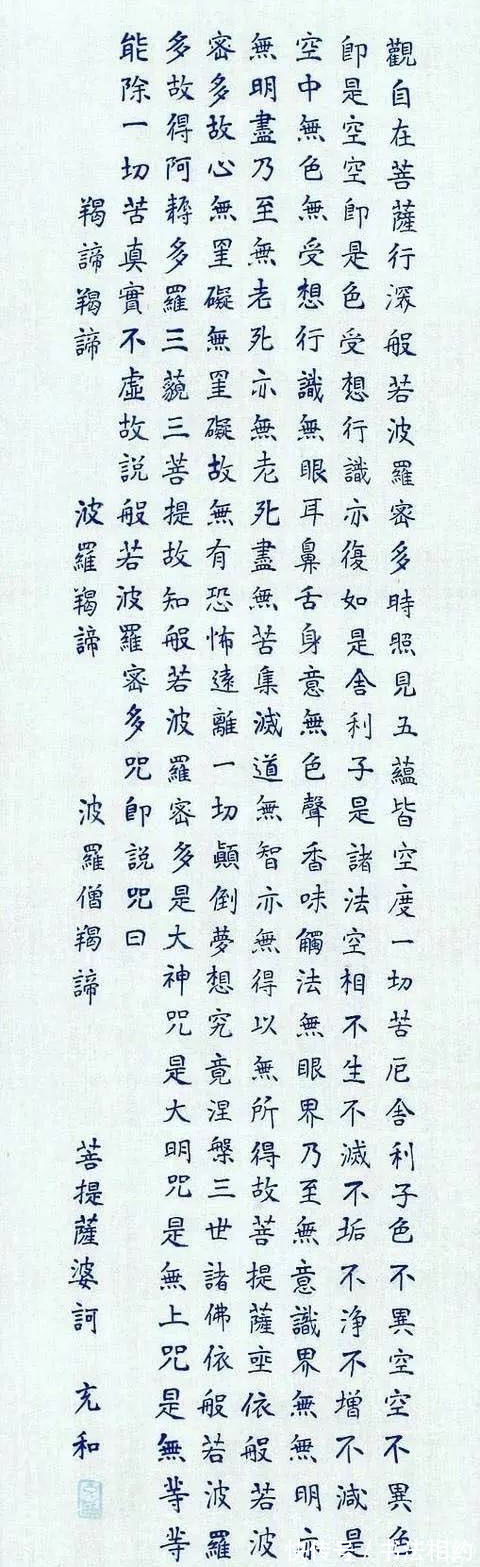 觀自在菩薩行深般若波羅密多時照見五蘊皆空度一切苦厄舍利子色不異空空不異色
即是空空即是色受想行識亦復如是舍利子是諸法空相不生不滅不垢不淨不增不減是
空中無色無受想行識無眼耳鼻舌身意無色聲香味觸法無眼界乃至無意識界無無明亦
無明盡乃至無老死亦無老死盡無苦集滅道無智亦無得以無所得故菩提薩埵依般若波
密多故心無罣礙無罣礙故無有恐怖遠離一切顛倒夢想究竟涅槃三世諸佛依般若波羅
多故得阿耨多羅三藐三菩提故知般若波羅密多是大神咒是大明咒是無上咒是無等等
能除一切苦真實不虛故說般若波羅密多咒即說咒曰
羯諦羯諦 波羅羯諦 波羅僧羯諦 菩提薩婆訶 充和
快传号/书法相约